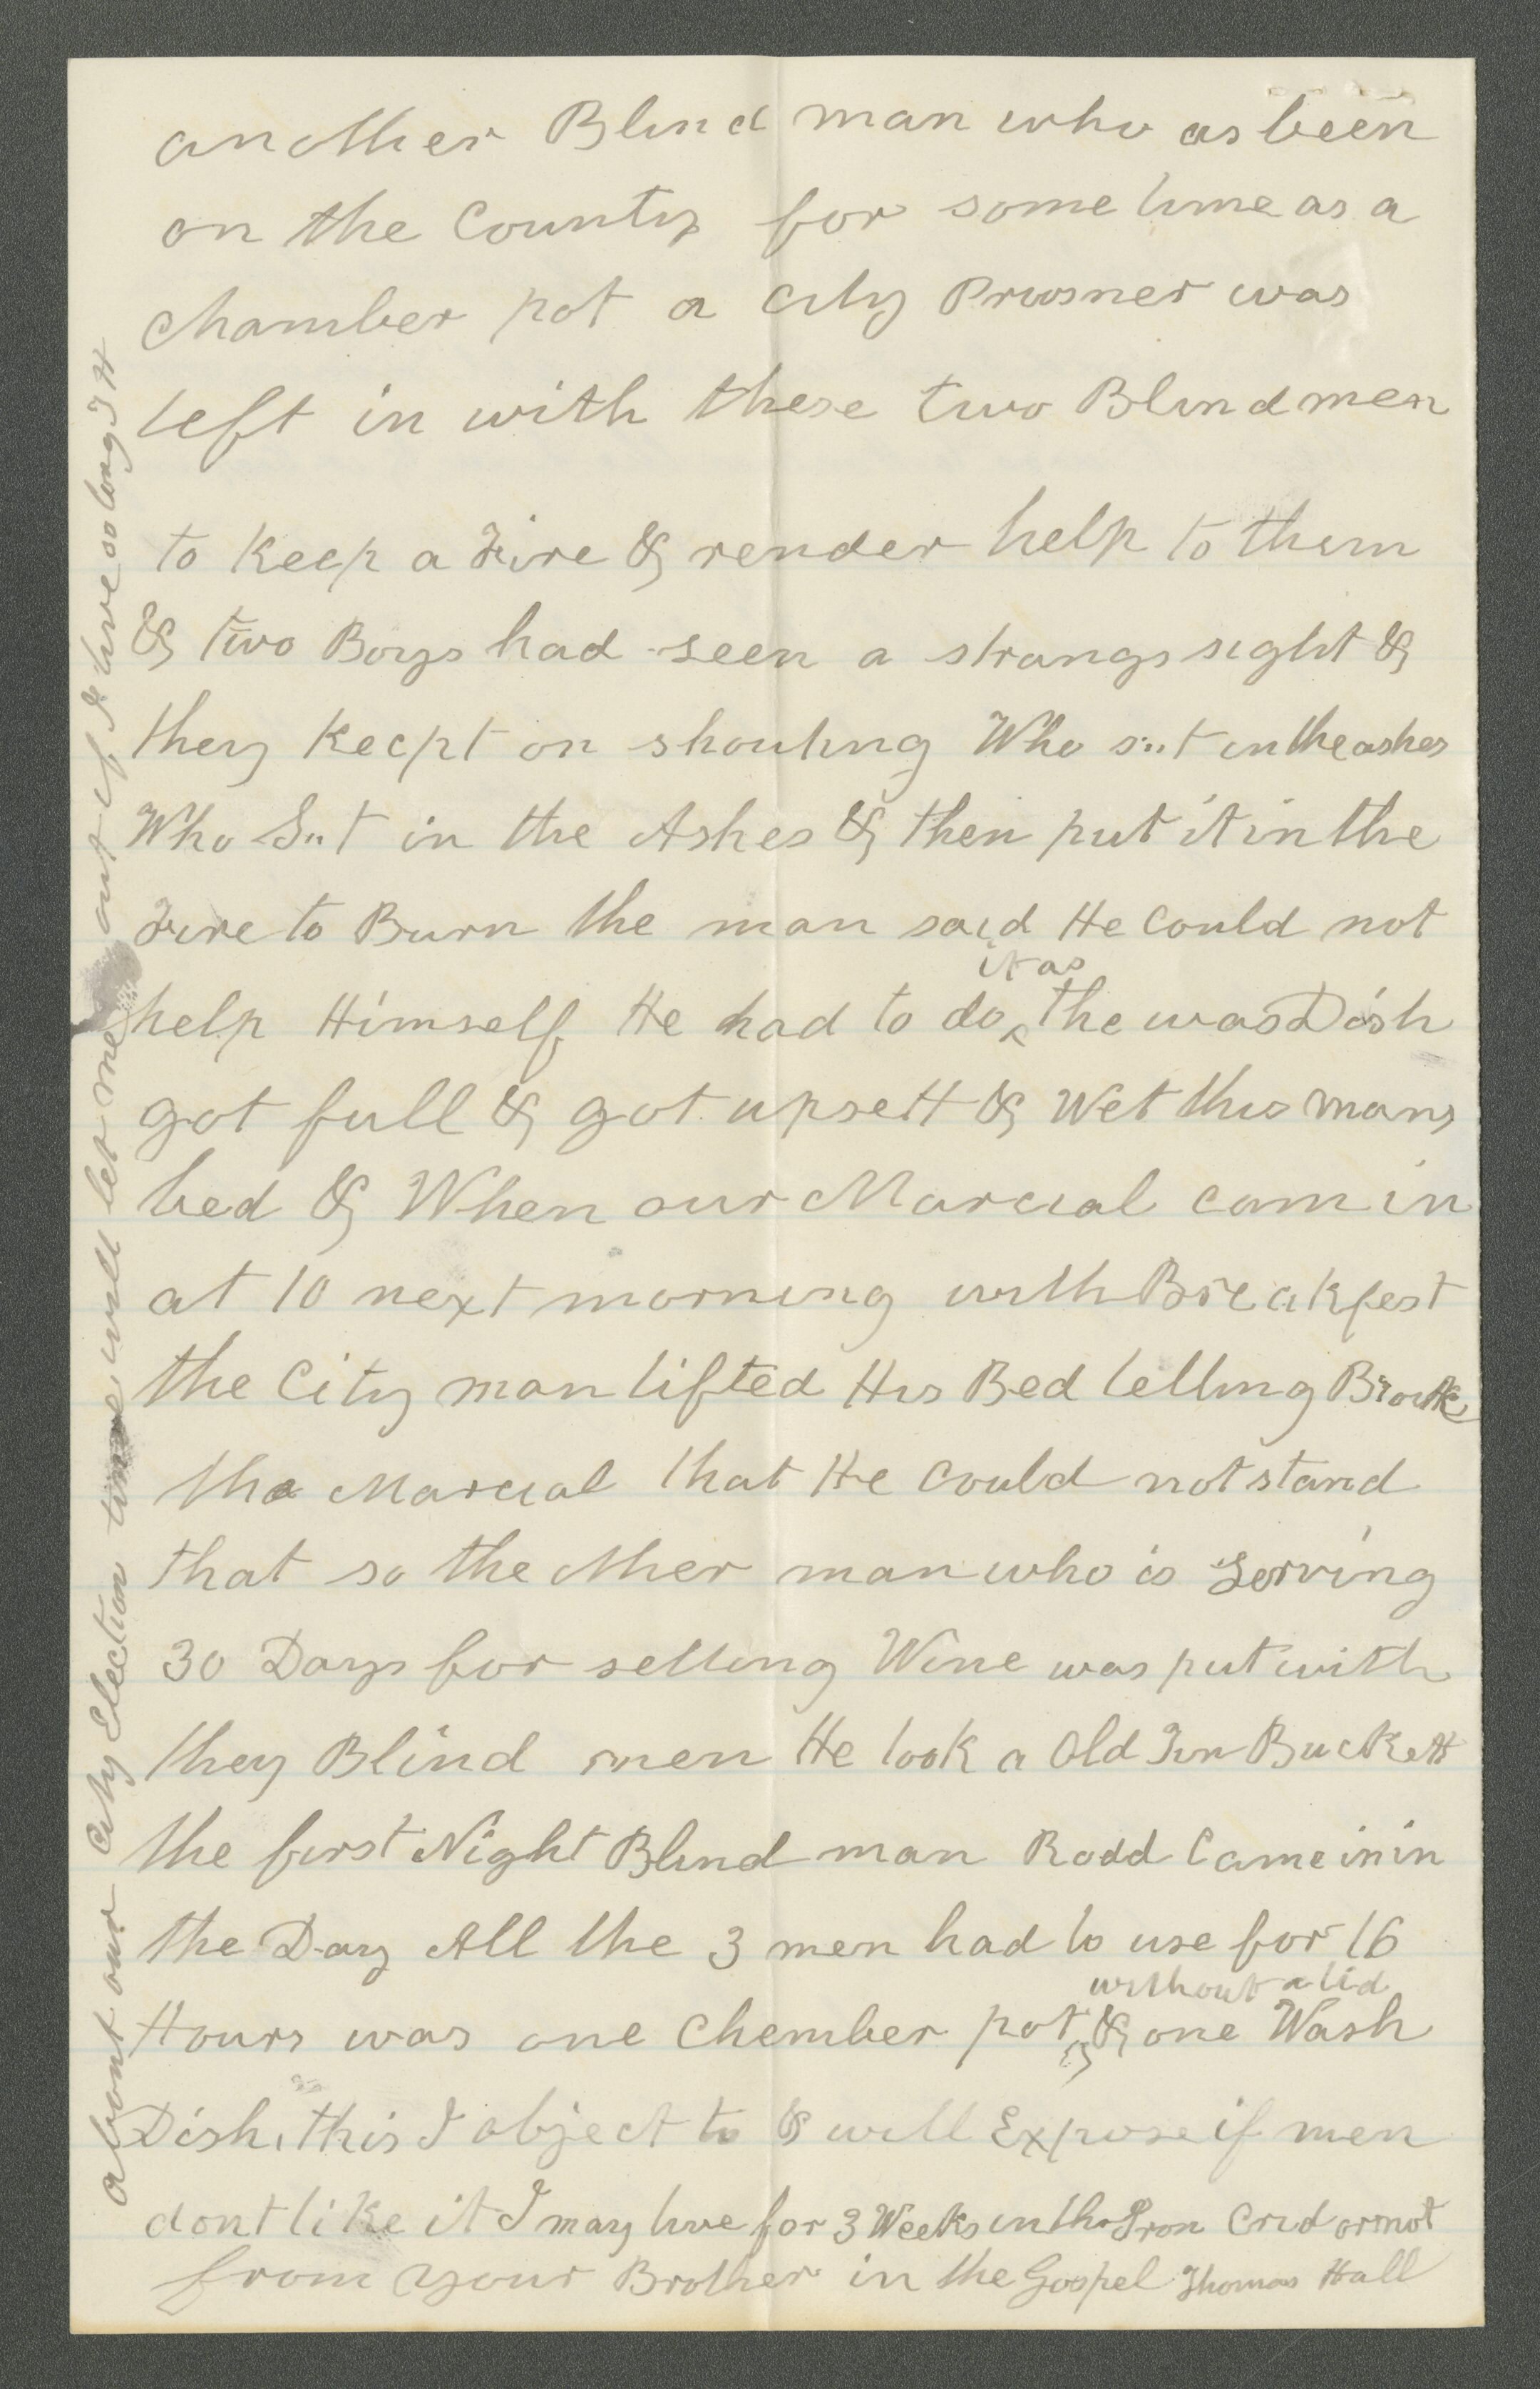 another Blind man who as been
on the County for some time as a
chamber pot a City Prisner was
left in with these two Blind men
to keep a Fire & render help to them
& two Boys had seen a strangs sight &
they keept on shouting Who s..t in the ashes
Who S..t in the Ashes & then put it in the
Fire to Burn the man said He could not
help Himself He had to do ^ it as the was Dish
got full & got upsett & Wet this mans
bed & When our Marcial cam in
at 10 next morning with Breakfest
the City man lifted His Bed telling
the Marcial that He could not stand
that so the other man who is Serving
30 Days for selling Wine was put with
they Blind men He took a Old Tin Buckett
the first Night Blind man Rodd Came in in
the Day All the 3 men had to use for 16
Hours was one Chember pot ^ without a lid & one Wash
Dish, this I object to & will Expose if men
dont like it I may live for 3 Weeks in the Iron Crid or not
from your Brother in the Gospel Thomas Hall
about our City Election time will let me out if I live so long T H